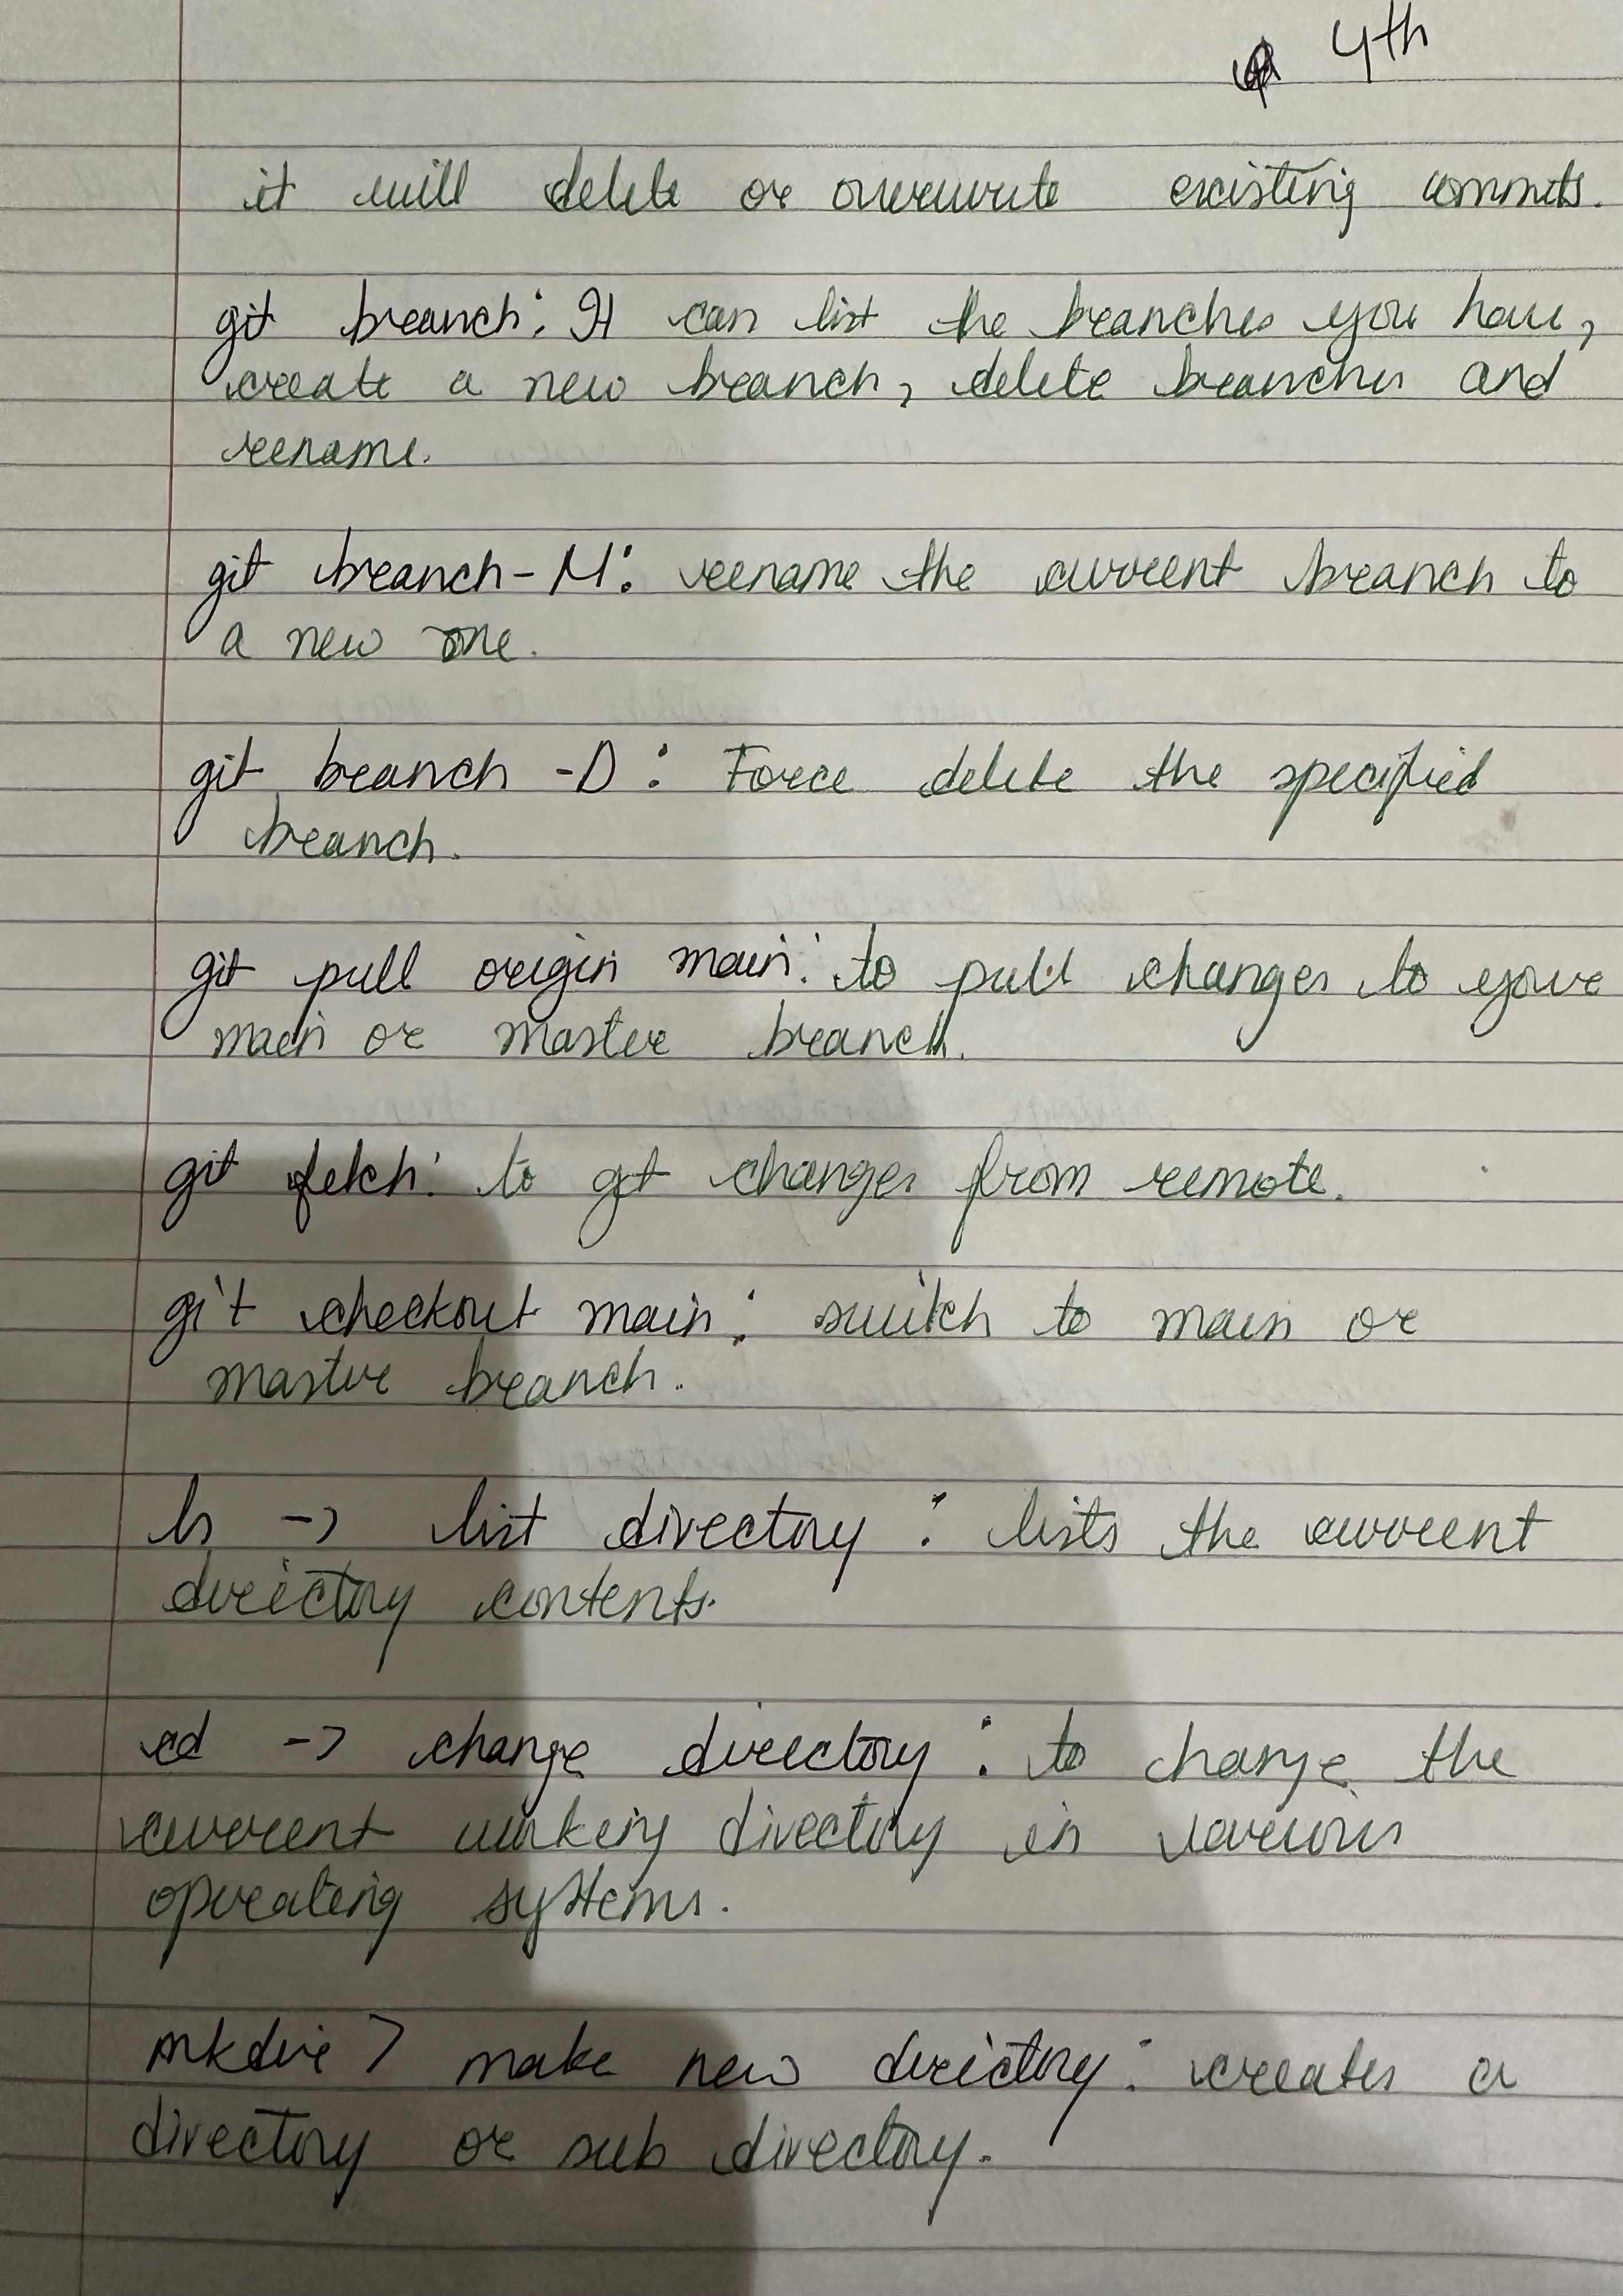 4th
it will delete or overwrite existing commits.
git branch: It can list the branches you have,
create a new branch, delete branches and
rename.
git branch-M: rename the current branch to
a new one.
git branch -D: Force delete the specified
branch.
git pull origin main: to pull changes to your
main or master branch.
git fetch: to get changes from remote.
git checkout main: switch to main or
master branch.
ls -> list directory: lists the current
directory contents.
cd -> change directory: to change the
current working directory in various
operating systems.
mkdir > make new directory: creates a
directory or sub directory.